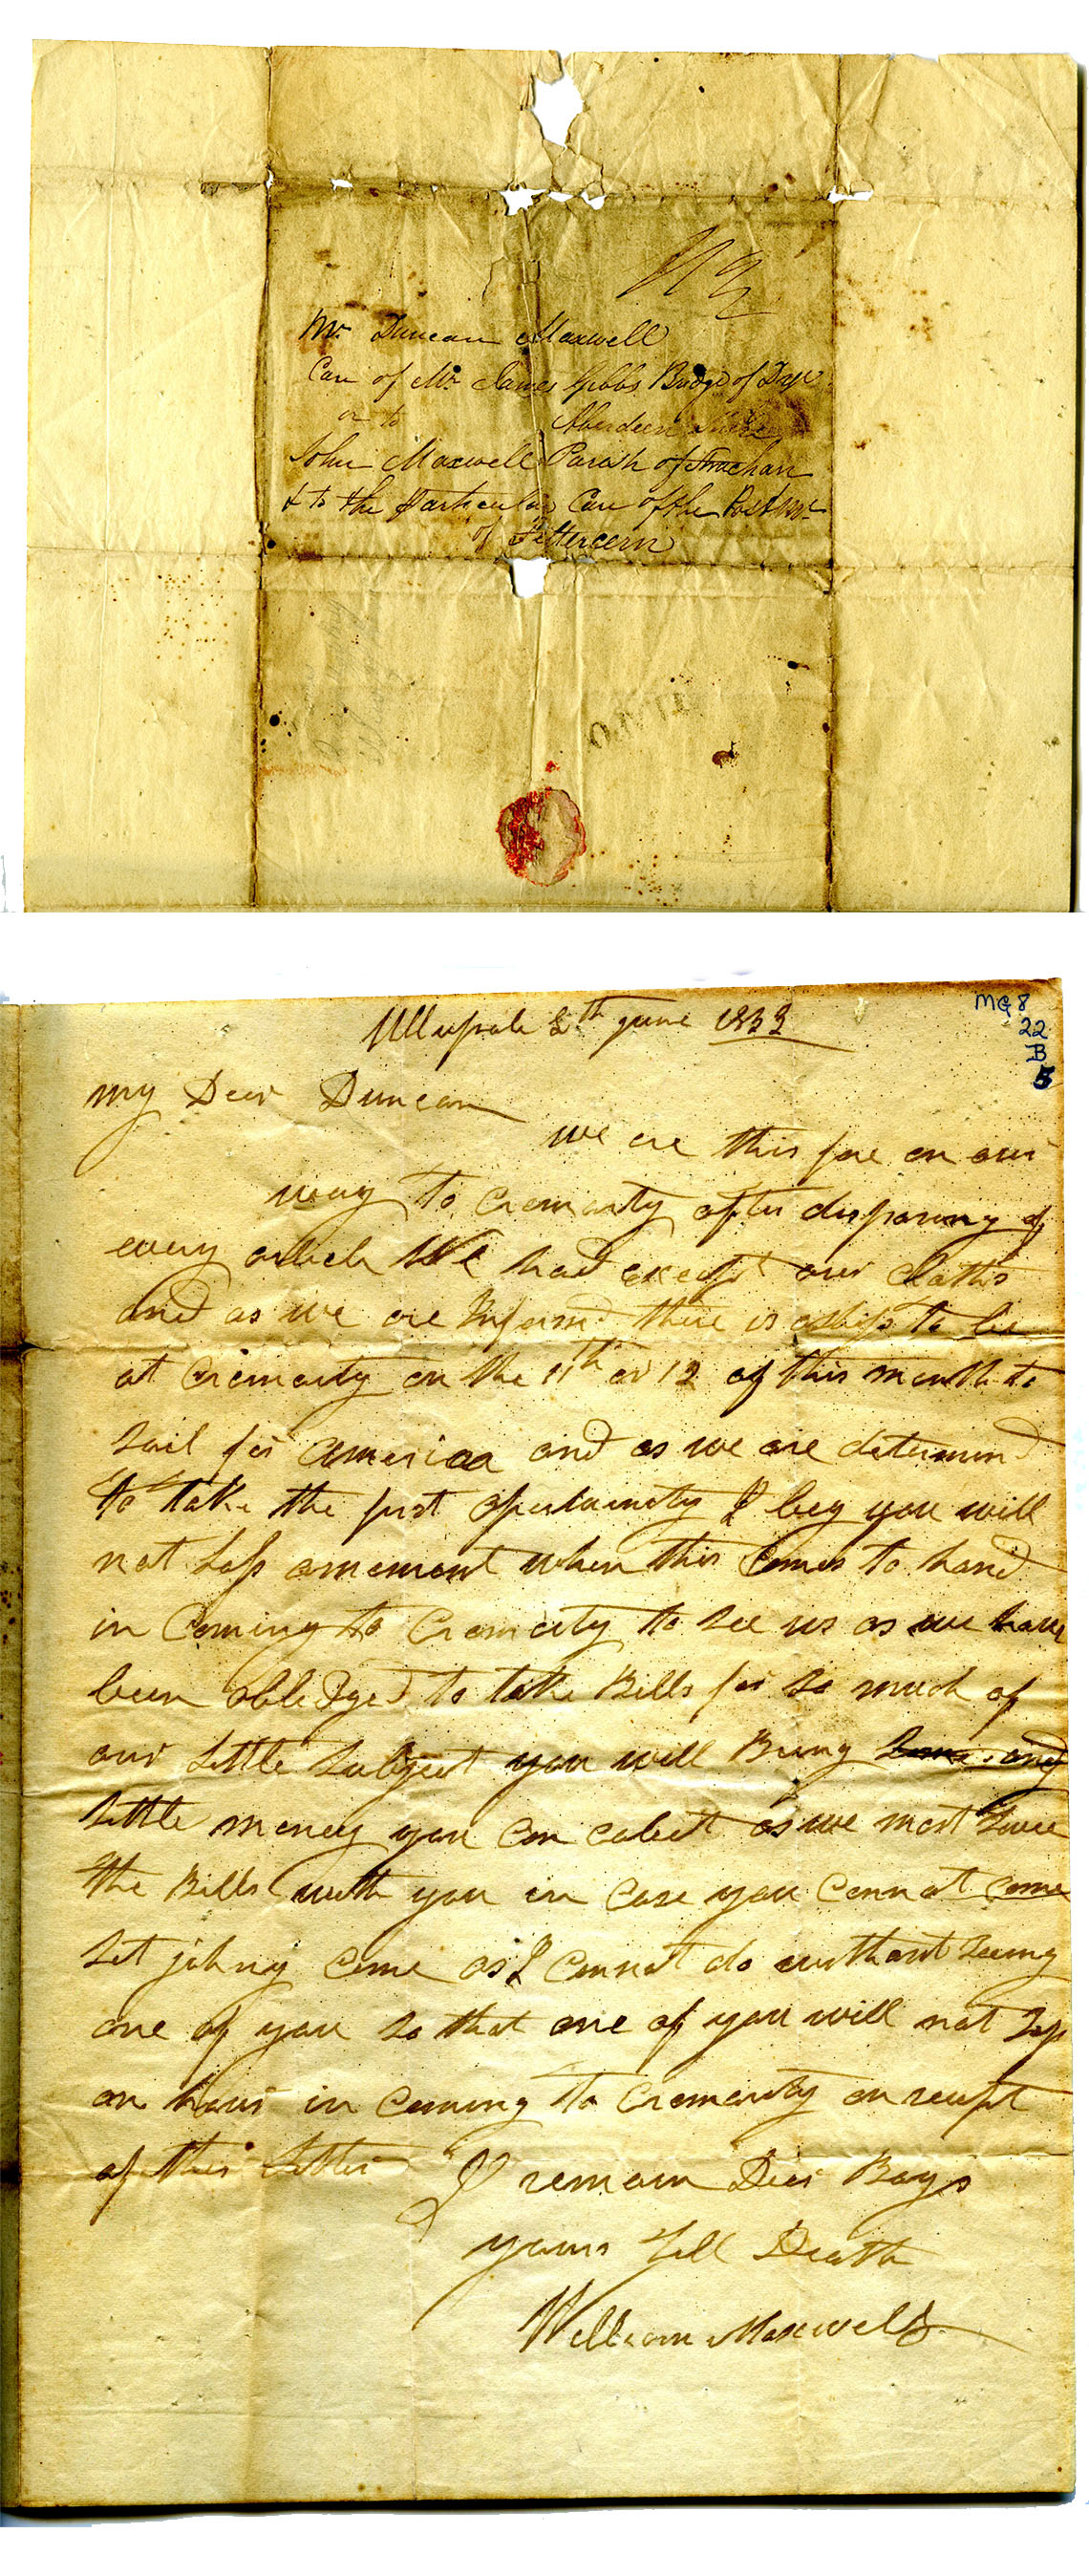 Mr. Duncan Maxwell
Care of Mr James Gibbs Bridge of Dye
or to Aberdeen Shire
John Maxwell Parish of Strachan
& to the Particular Care of the Post Mr
of Fettercern
MG 8
22
B
5
Ullapole 2th June 1833
My Dear Duncan
we are this far on our
way to Cromarty after disposing of
every artick We had except our Cloaths
and as we are Informd there is aship to be
at Cromarty on the 11th or 12 of this month to
Sail for America and as we are determind
to take the first opertunity I beg you will
not Loss amoment when this Comes to hand
in Coming to Cromarty to See us as we have
been obledged to take Bills for So much of
our Little Subject you will Bring and
Little money you Can colect as we most Leave
the Bills with you in Case you Cannot come
Let johny Come as I Cannot do without Seeing
one of you So that one of you will not Loss
an hour in Coming to Cromarty on receipt
of this Letter I remain Dear Boys
yours Till Death
William Maxwell